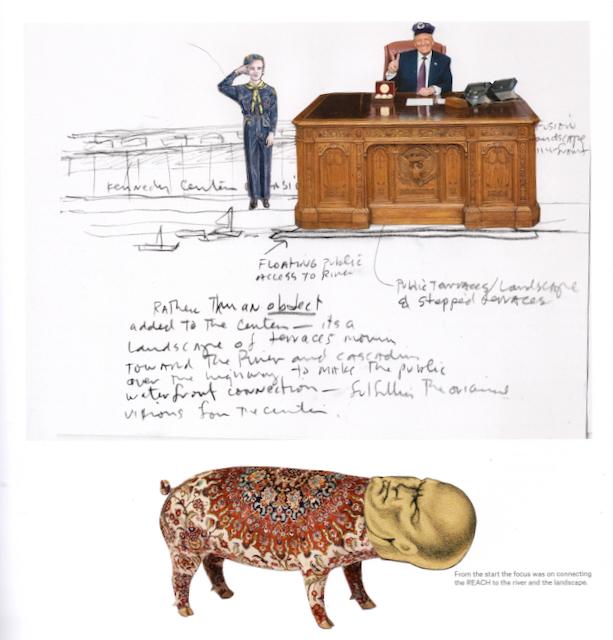 Kennedy Center
FUSION
Landscape
FLOATING Public
ACCESS TO River
Public Terraces/Landscape
& Stepped terraces
RATHER Than an object
added to the Center — its a
Landscape of terraces moving
TOWARD The River and cascading
over The highway to make the public
waterfront connection — fulfilling The original
visions for The center.
From the start the focus was on connecting
the REACH to the river and the landscape.